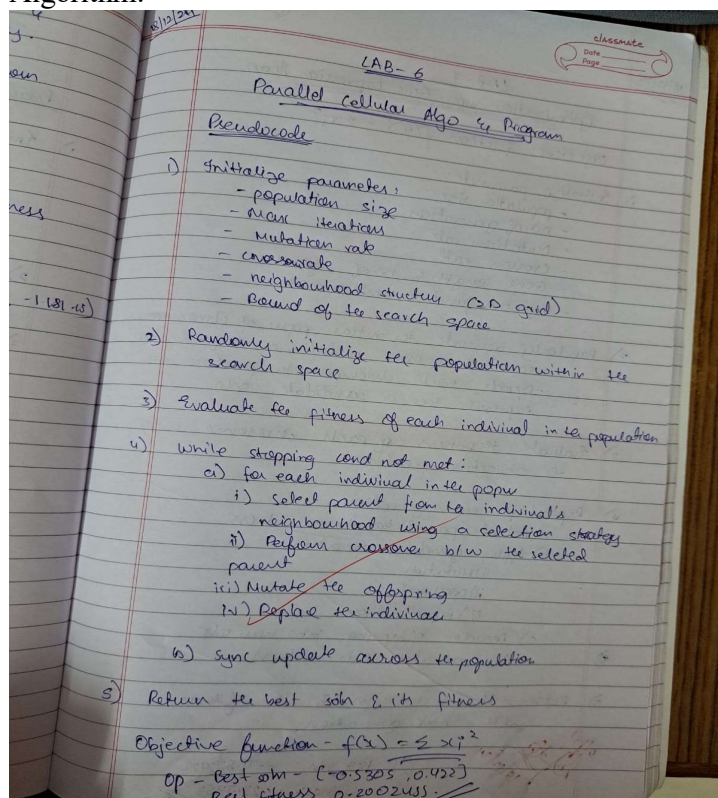 Algorithm:
18/12/24
classmate
Date
Page
LAB-6
Parallel Cellular Algo & Program
Pseudocode
1) Initialize parameter:
- population size
- Max iterations
- Mutation rate
- crossorate
- neighbourhood structure (2D grid)
- Bound of the search space
2) Randomly initialize the population within the
search space
3) Evaluate the fitness of each indiviual in the population
4) while stopping cond not met:
a) for each indiviual in the popu
i) select parent from the indiviual's
neighbourhood using a selection strategy
ii) Perform crossover b/w the seleted
parent
iii) Mutate the offspring
iv) Replace the indiviual
b) sync update across the population
5) Return the best soln & its fitness
Objective function - f(x) = Σ xi²
Op - Best soln - [-0.5305, 0.422]
Best fitness 0.2002455
ness
-1181.15)